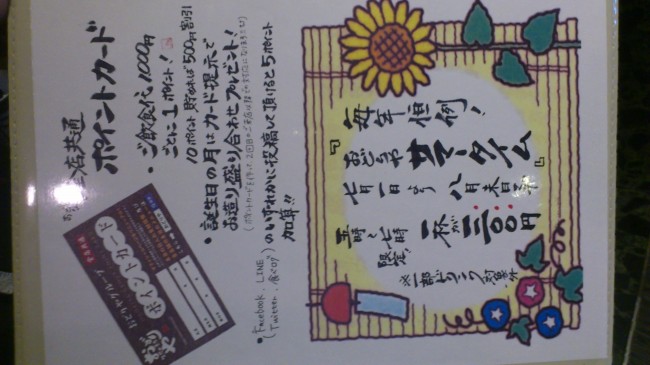 毎年恒例!
『おどりや サマータイム』
七月一日より 八月末日まで
一杯が三〇〇円
五時〜七時
限定
※一部ドリンク対象外
二店共通
ポイントカード
・ご飲食代1000円
ごとに1ポイント!
10ポイント貯めれば500円割引
・誕生日の月はカード提示で
お造り盛り合わせプレゼント!
・(Facebook、LINE
Twitter、食べログ)
のいずれかに投稿して頂けると5ポイント
加算!!
ポイントカード